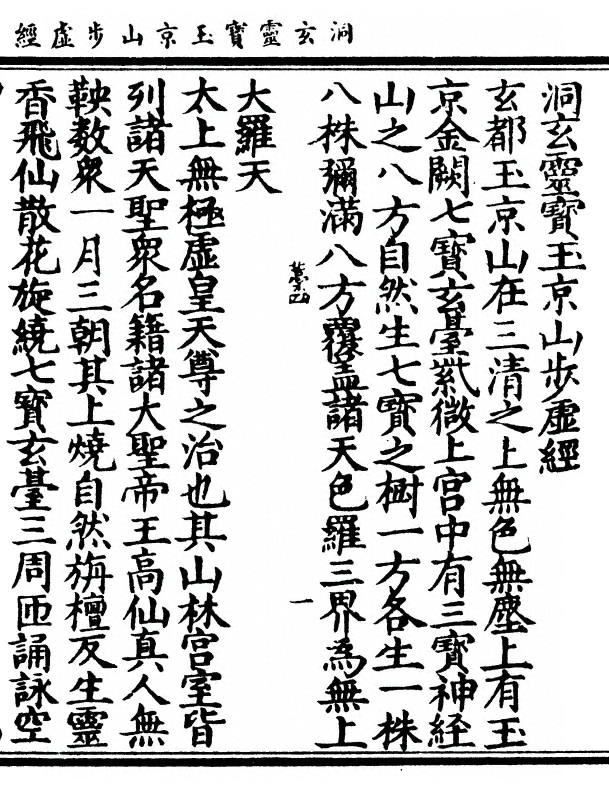 洞玄靈寳玉京山步虛經
洞玄靈寳玉京山步虛經
玄都玉京山在三清之上無色無塵上有玉
京金闕七寳玄臺紫微上宫中有三寳神經
山之八方自然生七寳之樹一方各生一株
八株彌滿八方覆盖諸天色羅三界爲無上
一
大羅天
太上無極虛皇天尊之治也其山林宫室皆
列諸天聖衆名籍諸大聖帝王高仙真人無
鞅数衆一月三朝其上燒自然旃檀反生靈
香飛仙散花旋繞七寳玄臺三周匝誦詠空